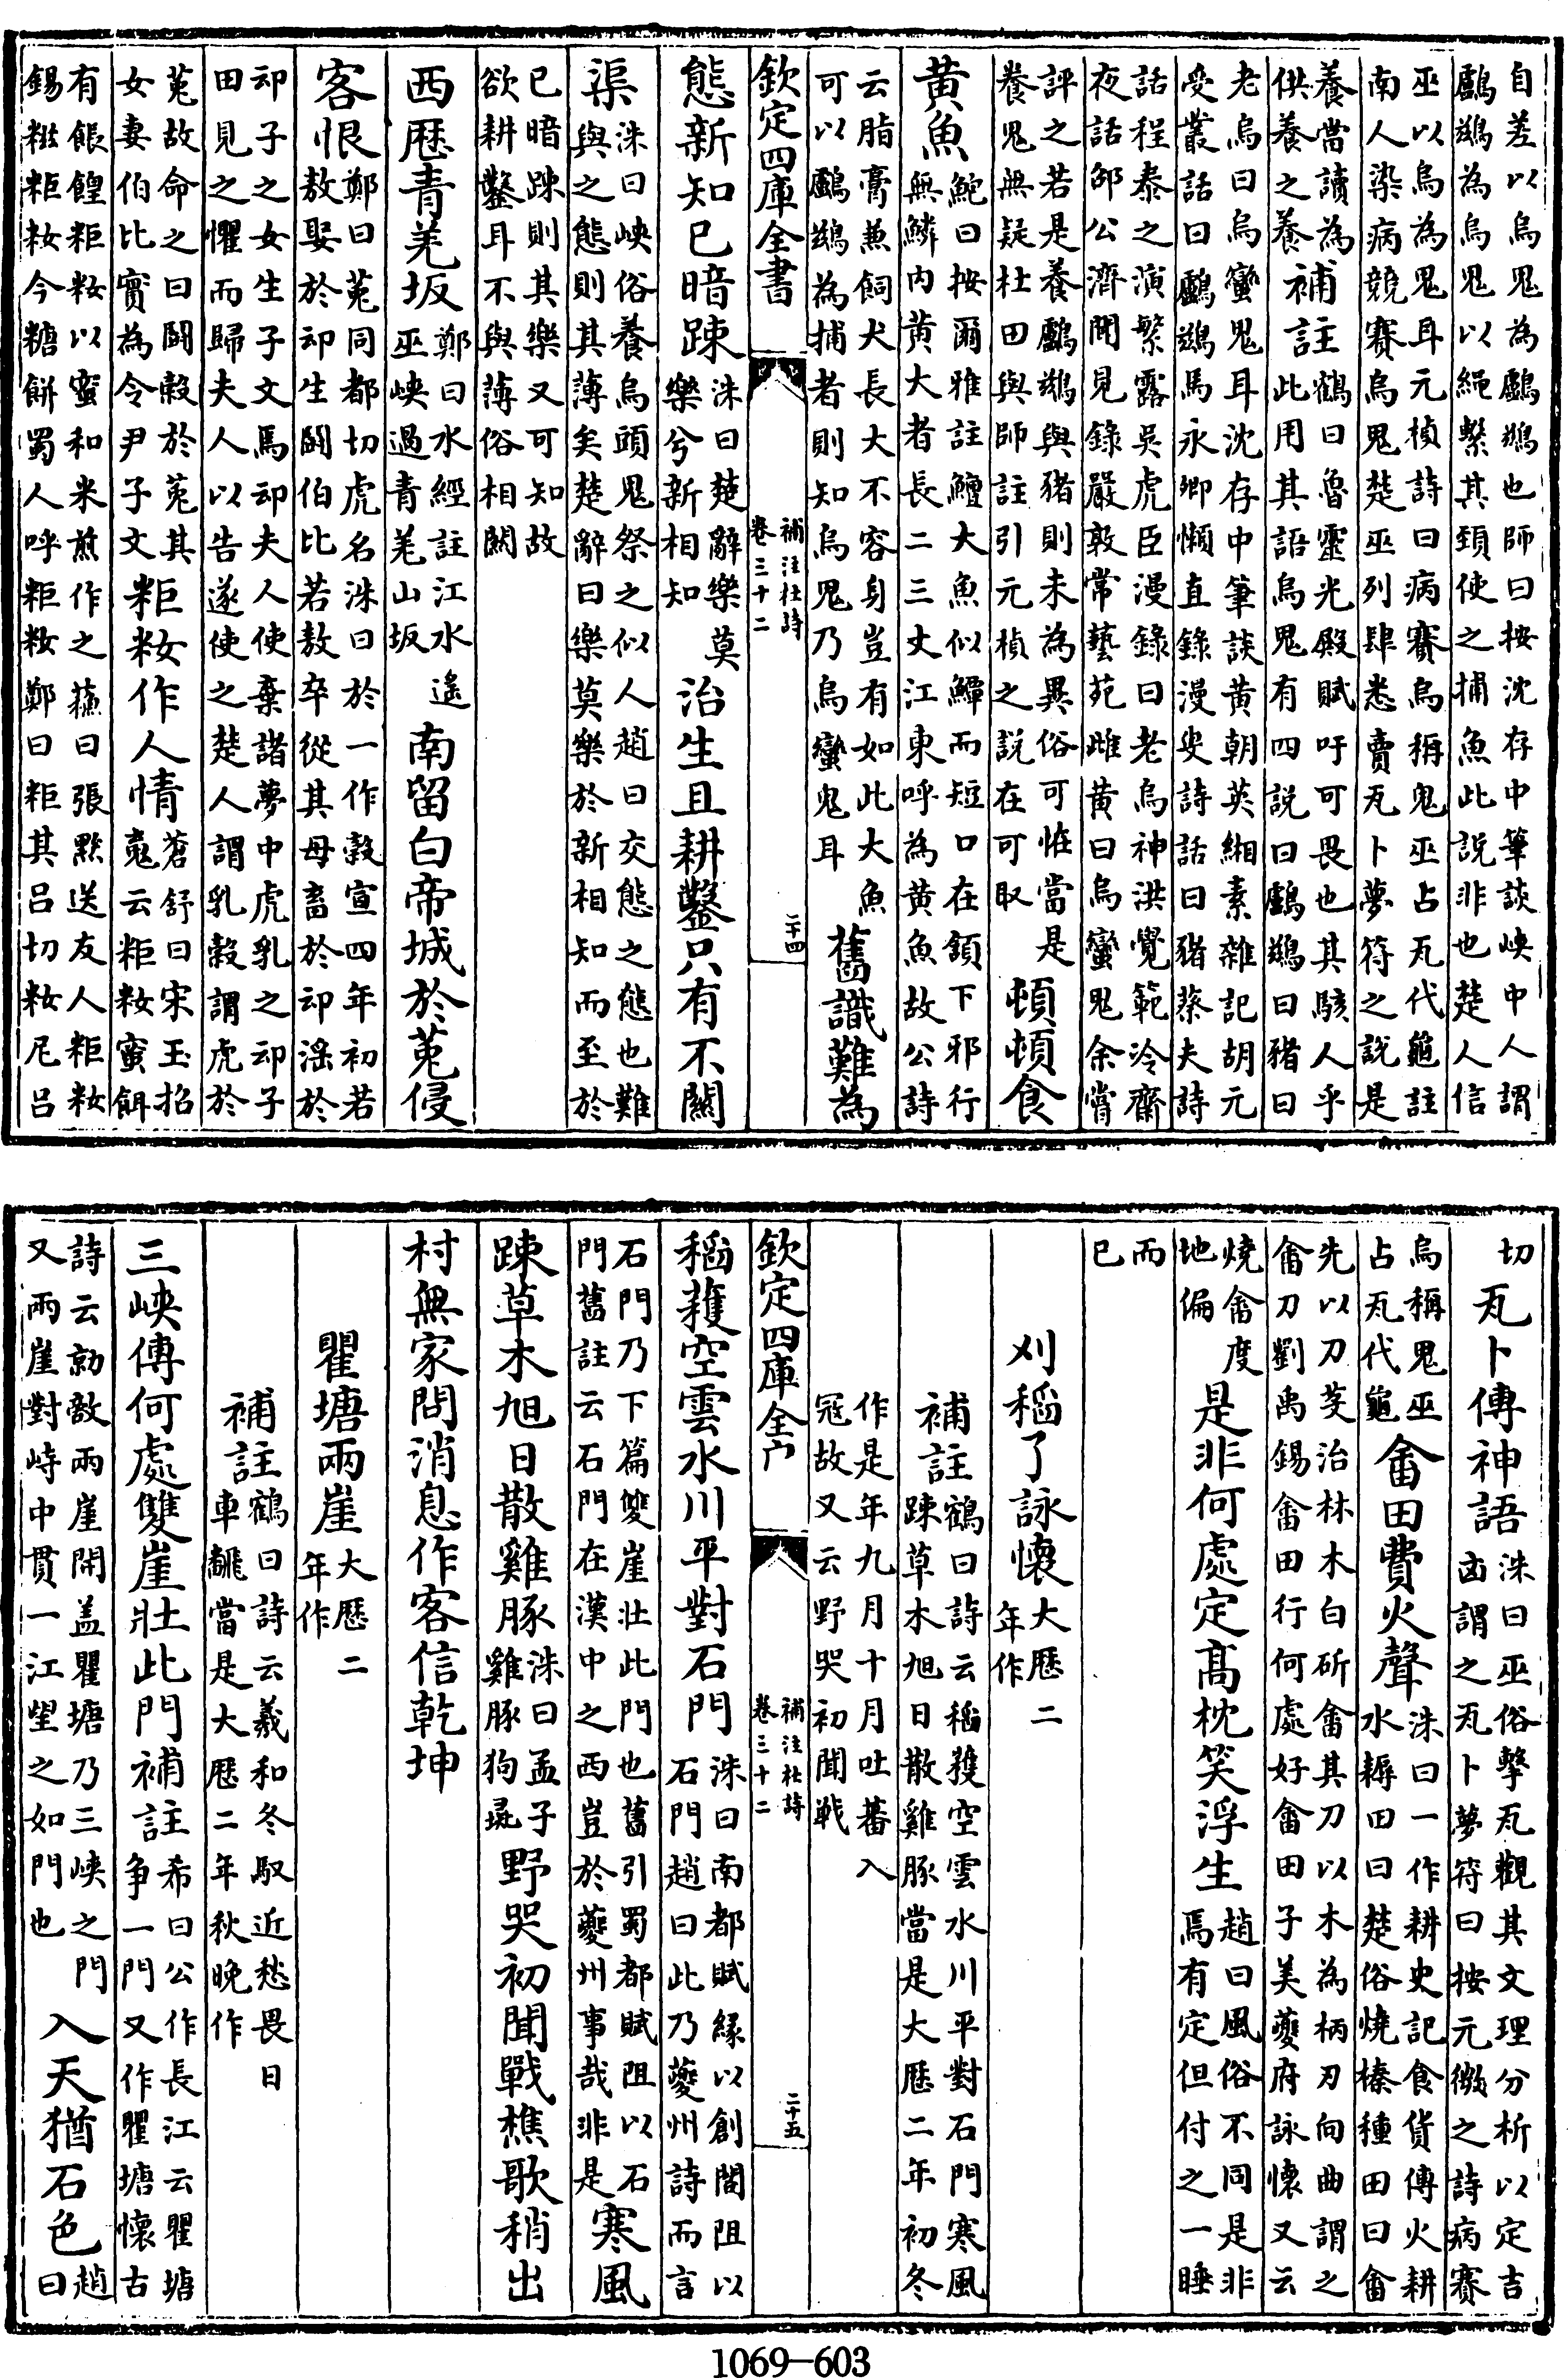 自差以烏鬼為鸕鷀也師曰按沈存中筆談峽中人謂
鸕鷀為烏鬼以繩繫其頸使之捕魚此說非也楚人信
巫以烏為鬼耳元楨詩曰病賽烏稱鬼巫占瓦代龜註
南人染病競賽烏鬼楚巫列肆悉賣瓦卜夢符之說是
養當讀為
供養之養補註鶴曰魯靈光殿賦吁可畏也其駭人乎
此用其語烏鬼有四說曰鸕鷀曰豬曰
老烏曰烏蠻鬼耳沈存中筆談黃朝英緗素雜記胡元
受叢話曰鸕鷀馬永卿懶直錄漫叟詩話曰豬蔡夫詩
話程泰之演繁露吳虎臣漫錄曰老烏神洪覺範泠齋
夜話邵公濟聞見錄嚴敦常藝苑雌黃曰烏蠻鬼余嘗
評之若是養鸕鷀與豬則未為異俗可怪當是
養鬼無疑杜田與師註引元楨之說在可取頓頓食
黃魚鮑曰按爾雅註鱣大魚似鱏而短口在頷下邪行
無鱗肉黃大者長二三丈江東呼為黃魚故公詩
云脂膏兼飼犬長大不容身豈有如此大魚
可以鸕鷀為捕者則知烏鬼乃烏蠻鬼耳舊識難為
欽定四庫全書 補注杜詩卷三十二 二十四
態新知已暗踈洙曰楚辭樂莫
樂兮新相知治生且耕鑿只有不關
渠洙曰峽俗養烏頭鬼祭之似人趙曰交態之態也難
與之態則其薄矣楚辭曰樂莫樂於新相知而至於
已暗踈則其樂又可知故
欲耕鑿耳不與薄俗相關
西歴青羌坂鄭曰水經註江水遙
巫峽過青羌山坂南留白帝城於菟侵
客恨鄭曰菟同都切虎名洙曰於一作㝅宣四年初若
敖娶於䢵生鬬伯比若敖卒從其母畜於䢵滛於
䢵子之女生子文焉䢵夫人使棄諸夢中虎乳之䢵子
田見之懼而歸夫人以告遂使之楚人謂乳㝅謂虎於
菟故命之曰鬬㝅於菟其
女妻伯比實為令尹子文粔籹作人情蒼舒曰宋玉招
䰟云粔籹蜜餌
有餦餭粔籹以蜜和米煎作之蘓曰張黙送友人粔籹
錫糍粔籹今糖餅蜀人呼粔籹鄭曰粔其呂切籹尼呂
切瓦卜傳神語洙曰巫俗擊瓦觀其文理分析以定吉
凶謂之瓦卜夢符曰按元微之詩病賽
烏稱鬼巫
占瓦代龜畬田費火聲洙曰一作耕史記食貨傳火耕
水耨田曰楚俗燒榛種田曰畬
先以刀芟治林木白斫畬其刀以木為柄刃向曲謂之
畬刀劉禹錫畬田行何處好畬田子美夔府詠懷又云
燒畬度
地偏是非何處定髙枕笑浮生趙曰風俗不同是非
焉有定但付之一睡
而
已
刈稻了詠懷大歴二
年作
補註鶴曰詩云稻穫空雲水川平對石門寒風
踈草木旭日散雞豚當是大歴二年初冬
作是年九月十月吐蕃入
冦故又云野哭初聞戦
欽定四庫全書 補注杜詩卷三十二 二十五
稻穫空雲水川平對石門洙曰南都賦緣以劍閣阻以
石門趙曰此乃夔州詩而言
石門乃下篇雙崖壮此門也舊引蜀都賦阻以石
門舊註云石門在漢中之西豈於夔州事哉非是寒風
踈草木旭日散雞豚洙曰孟子
雞豚狗彘野哭初聞戰樵歌稍出
村無家問消息作客信乾坤
瞿塘兩崖大歴二
年作
補註鶴曰詩云羲和冬馭近愁畏日
車飜當是大歴二年秋晚作
三峽傳何處雙崖壯此門補註希曰公作長江云瞿塘
争一門又作瞿塘懷古
詩云勍敵兩崖開盖瞿塘乃三峽之門
又兩崖對峙中貫一江望之如門也入天猶石色趙
曰
1069—603